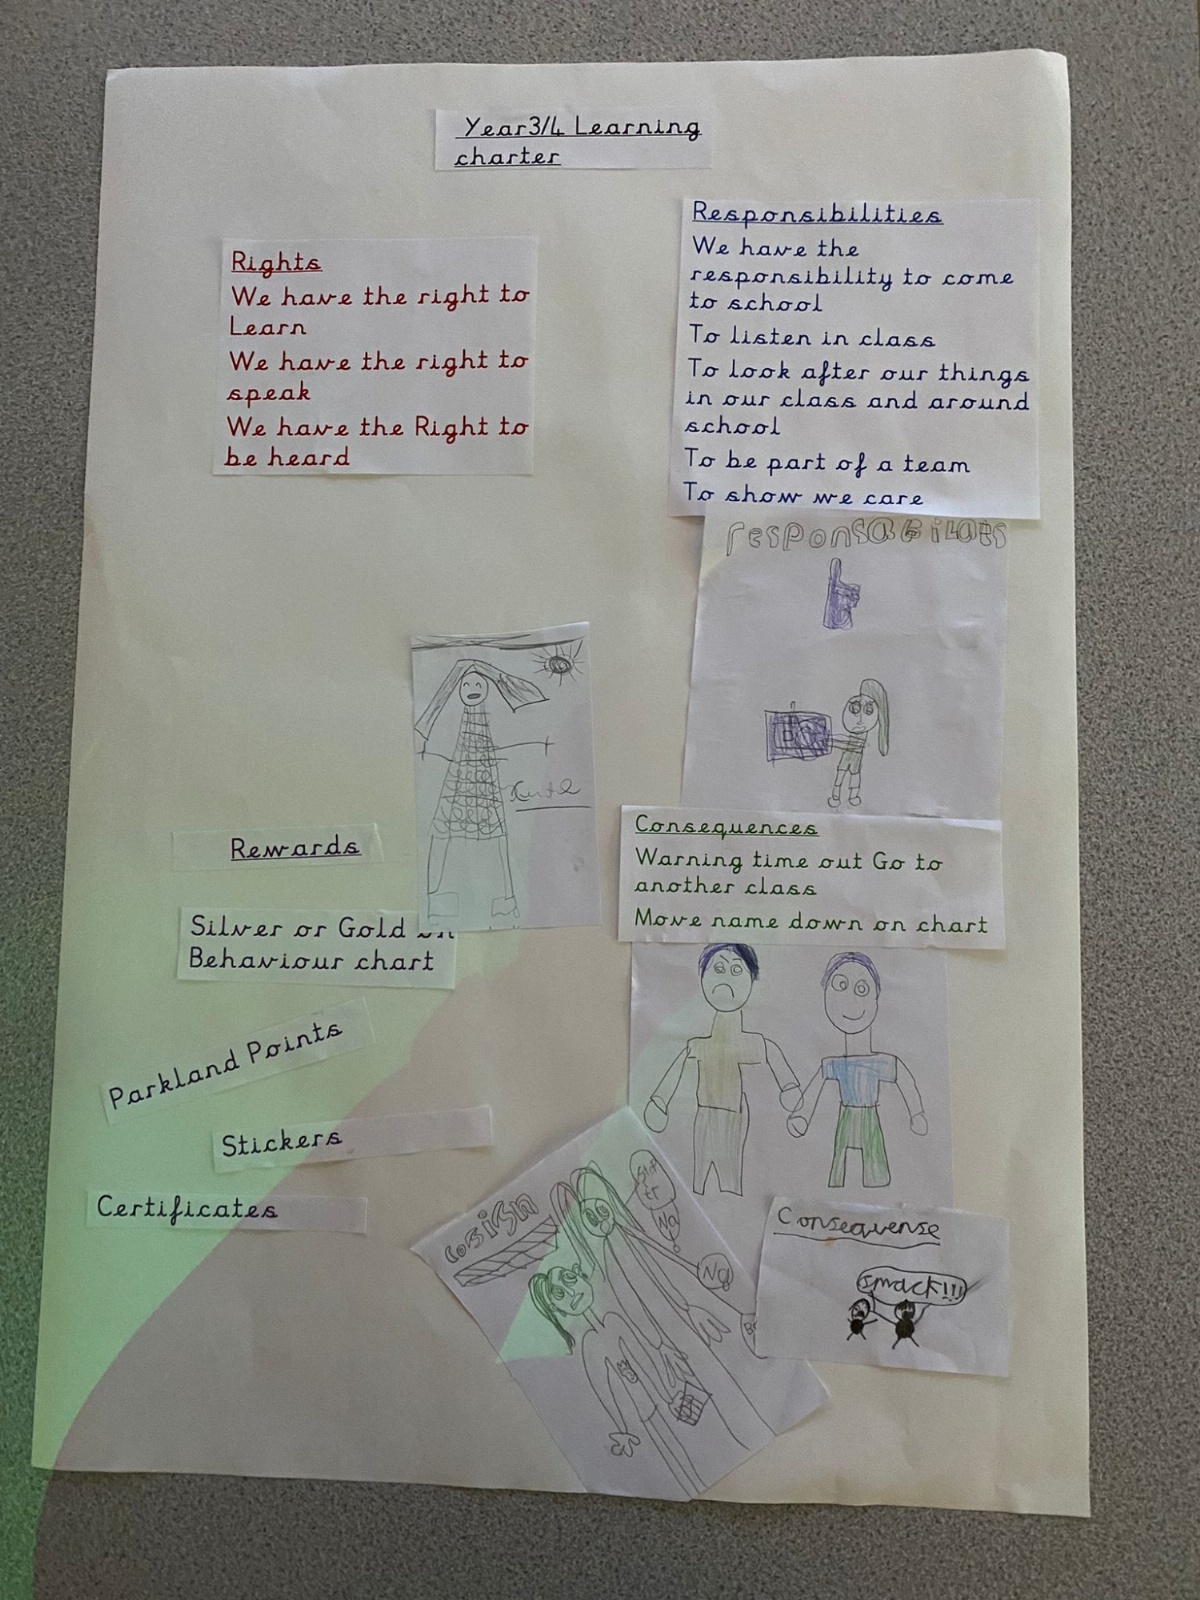 Year3/4 Learning
charter
Rights
We have the right to
Learn
We have the right to
speak
We have the Right to
be heard
Responsibilities
We have the
responsibility to come
to school
To listen in class
To look after our things
in our class and around
school
To be part of a team
To show we care
Rewards
Silver or Gold on
Behaviour chart
Parkland Points
Stickers
Certificates
Consequences
Warning time out Go to
another class
Move name down on chart
No
No
Consequense
smack!!!